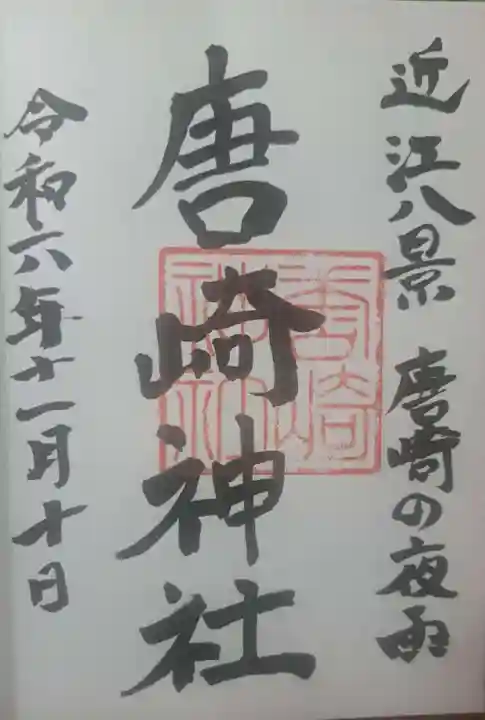 近江八景 唐崎の夜雨
唐崎神社
唐崎
神社
令和六年十一月十日